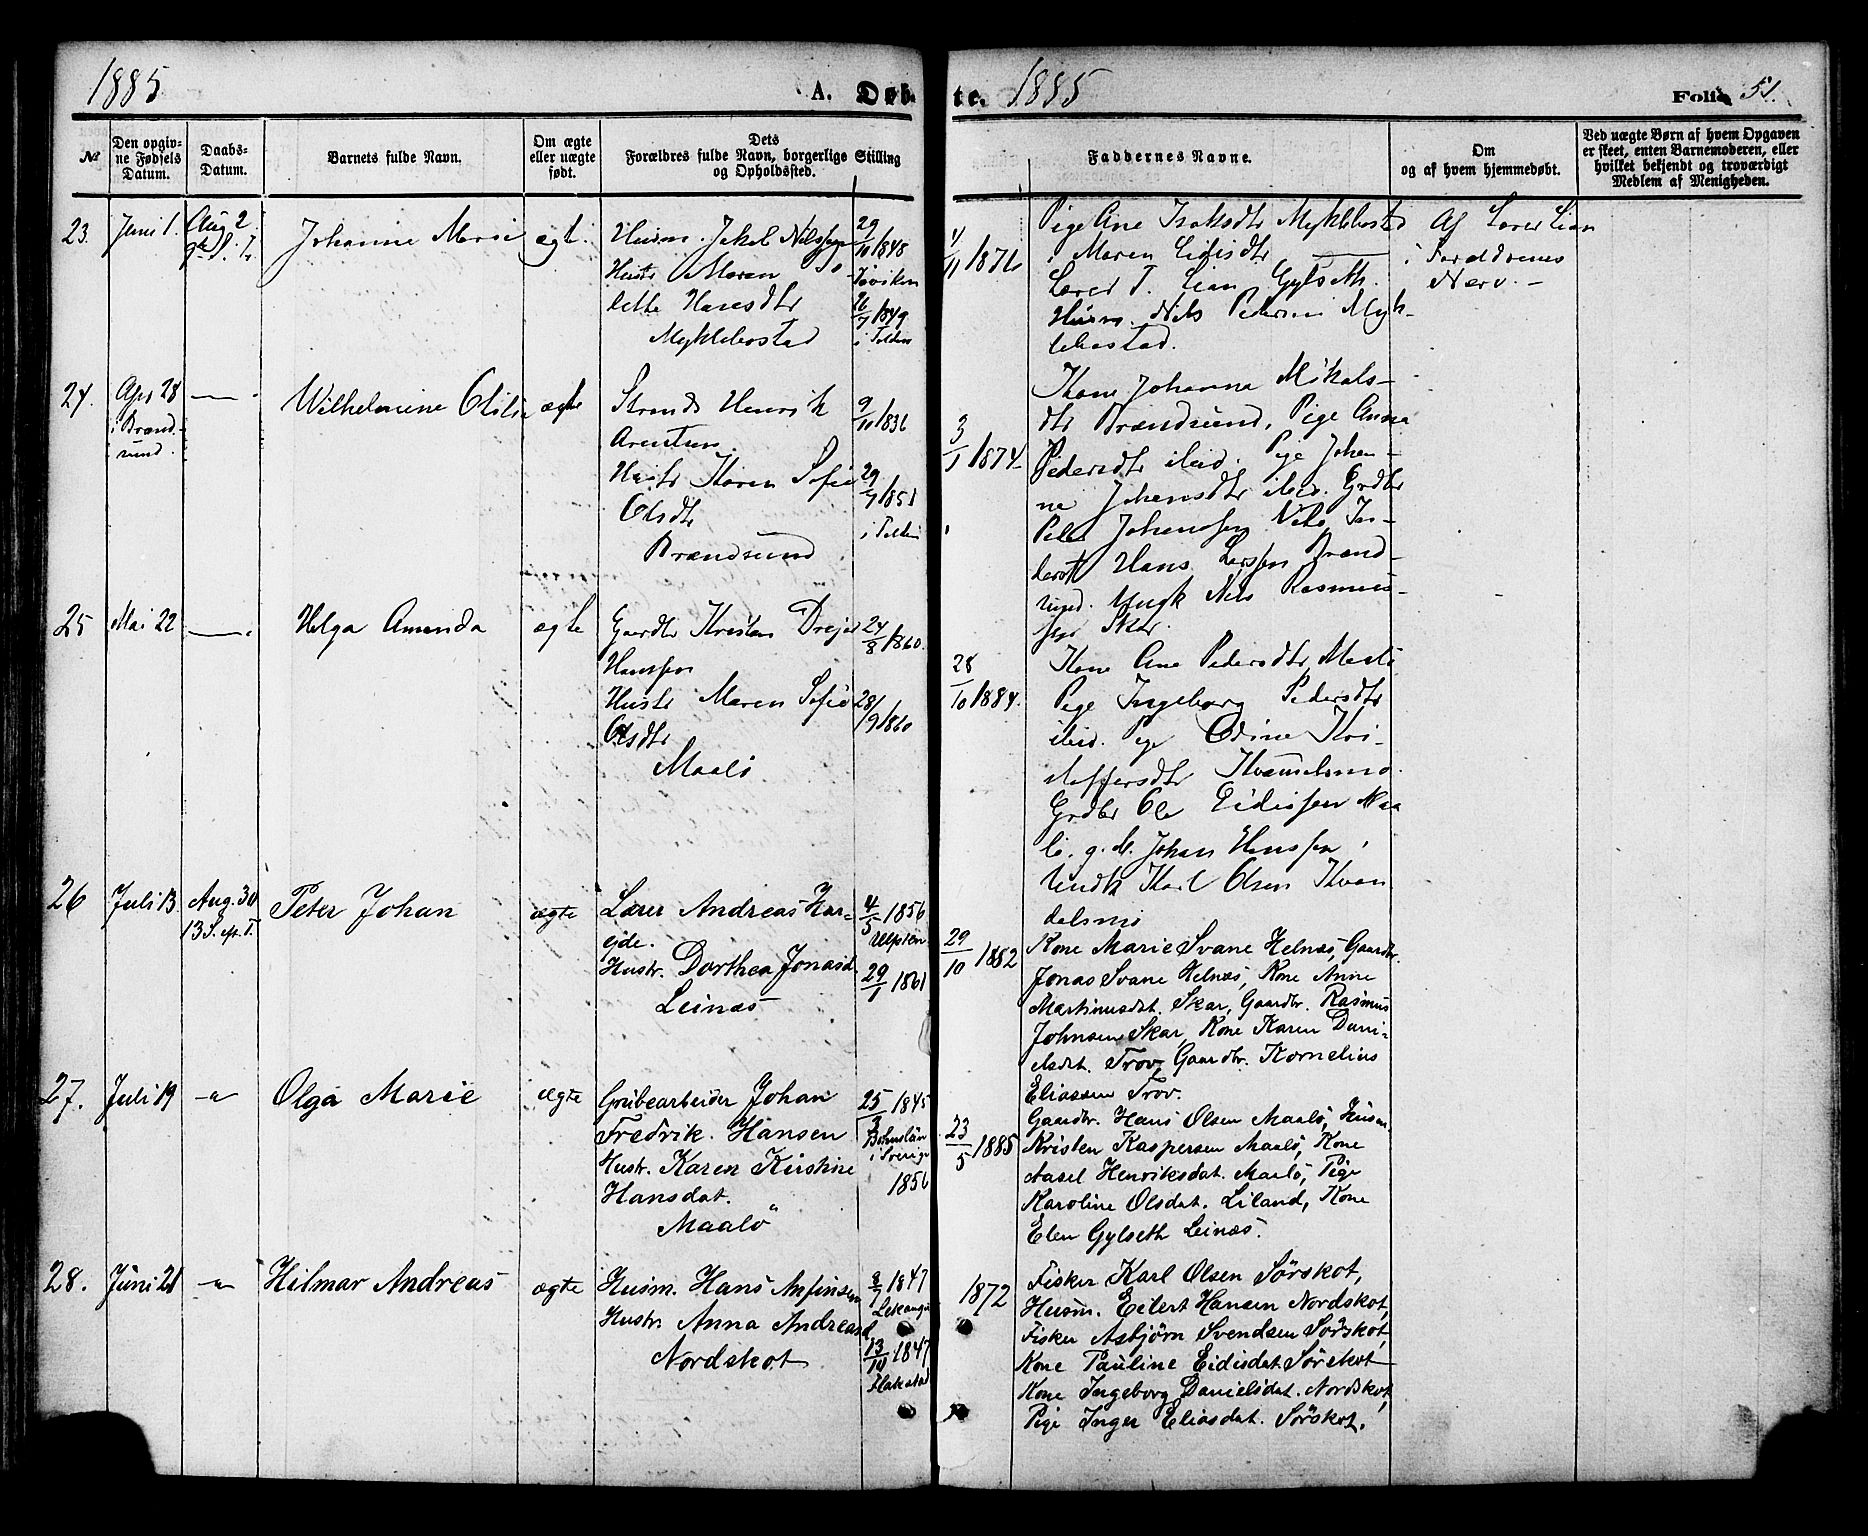 1885
A. Døb-
te. 1885
Folio 51.
№
Den opgiv-
ne Fødsels
Datum.
Daabs-
Datum.
Barnets fulde Navn.
Om ægte
eller uægte
født.
Dets
Forældres fulde Navn, borgerlige Stilling
og Opholdssted.
Faddernes Navne.
Om
og af hvem hjemmedøbt.
Ved uægte Børn af hvem Opgaven
er skeet, enten Barnemoderen, eller
hvilket bekjendt og troværdigt
Medlem af Menigheden.
23.
Juni 1.
Aug 2
Johanne Marie
ægt.
Husm. Jakob Nilssen
Hustr Maren
Hansdtr
Myklebostad
29/10 1848
26/7 1849
i Folden
11 1876
Pige Ane Isaksdtr Myklebostad
Maren Eidisdtr —
Lærer T. Lian Gylseth.
Husm. Nils Pedersen Myk-
lebostad.
Af Lærer Lian
i Forældrenes
Nærv. –
24.
Apr 28
i Brænd-
sund.
—
Wilhelmine Otilie
ægte
Strands Henrik
Arntsen
Hustr Karen Sofie
Olsdtr
Brændsund
9/10 1836
29/7 1851
i Folden
3/1 1874
Kone Johanna Mikals-
dtr Brændsund, Pige Anna
Pedersdtr ibid. Pige Johan-
na Johansdtr ibid. Grdbr
Peder Johanssen
Hans Larssen Brænd-
sund. Ungk Nils Rasmus-
sen Skar.
25
Mai 22
—
Helga Amanda
ægte
Gaardbr Kristen Dreyer
Hanssen
Hustr Maren Sofie
Olsdtr
Maalö
24/8 1860
28/9 1860
28/10 1884.
Kone Ane Pedersdtr
Pige Ingeborg Pedersdtr
ibid. Pige Odine Kri-
stoffersdtr Kvandalsmo.
Grdbr Ole Eidissen Maa
lö. g.m. Johan Hanssen
Ungk Karl Olsen Kvan
dalsmo
26
Juli 13
Aug. 30
13 S. eft. T.
Peter Johan
ægte
Lærer Andreas Har-
ejde.
Hustr. Dorthea Jonasd.
Leinæs
4/5 1856
Ulfsten
29/1 1861
29/10 1882
Kone Marie Svane Helnæs, Gaardbr.
Jonas Svane Helnæs, Kone Anne
Martinusdat. Skar, Gaardbr. Rasmus
Johnsen Skar, Kone Karen Dani-
elsdat. Trov, Gaardbr. Kornelius
Eliassen Trov.
27.
Juli 19
–"–
Olga Marie
ægte
Grubearbeider Johan
Fredrik. Hansen
Hustr. Karen Kirstine
Hansdat.
Maalö
25/3 1845
Bohuslän
i Sverige
1856
23/5 1885
Gaardbr. Hans Olsen Maalö, Husm
Kristen Kaspersen Maalö, Kone
Aasel Henriksdat. Maalö, Pige
Karoline Olsdat. Liland, Kone
Elen Gylseth Leinæs.
28.
Juni 21
–"–
Hilmar Andreas
ægte
Husm. Hans Anfinsen
Hustr. Anna Andreasd
Nordskot
8/7 1847
13/10 1847
Flakstad
1872
Fisker Karl Olsen Sörskot,
Husm. Eilert Hansen Nordskot,
Fisker Asbjørn Svendsen Sörskot,
Kone Pauline Eidisdat Sörskot
Kone Ingeborg Danielsdat. Nordskot,
Pige Inger Eliasdat. Sörskot.